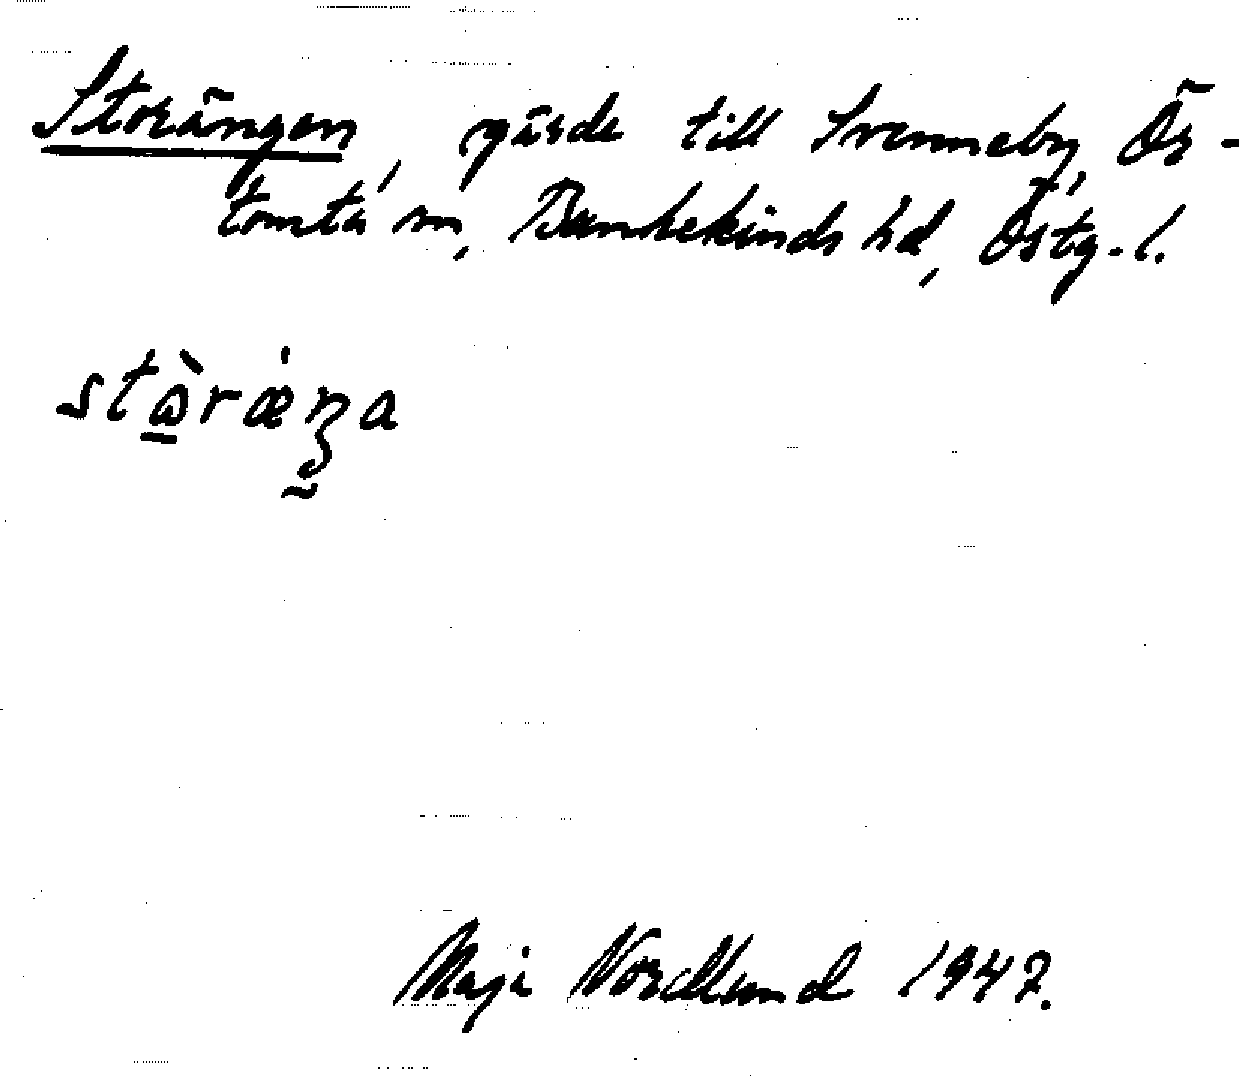 Storängen, gärde till Svenneby, Ös-
tomta sn, Bankekinds hd, Östg. l.
Maja Nordlund 1947.